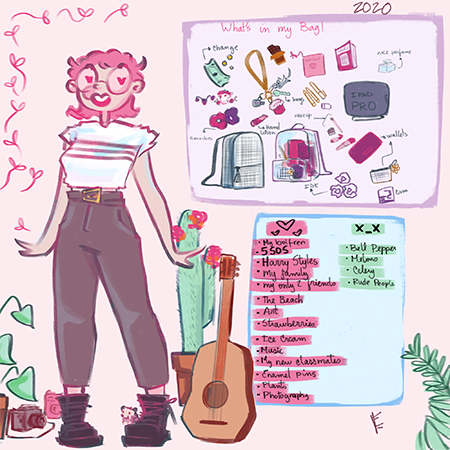 2020
What's in my Bag!
change
nice perfume
keys
IPAD
PRO
makeup
hand
lotion
wallets
Scrunchies
IDK
Gum
X_X
• My boifren
• 5SOS
• Harry Styles
• my family
• my only 2 friends
• The Beach
• Art
• Strawberries
• Ice Cream
• Music
• My new classmates
• Enamel pins
• Plants
• Photography
• Bell Pepper
• Melons
• Celery
• Rude People